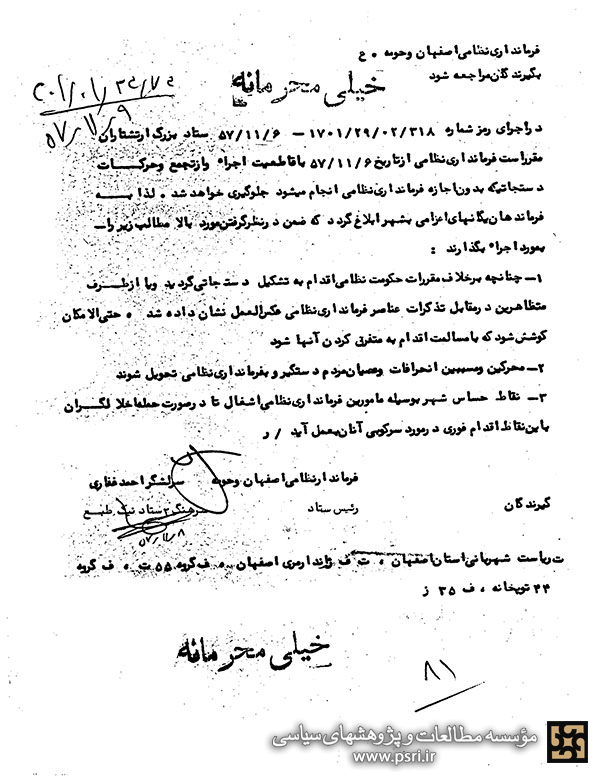 فرمانداری نظامی اصفهان وحومه . ع
بگیرندگان مراجعه شود
خیلی محرمانه
۵۷/۱۱/۹
دراجرای رمز شماره ۱۷۰۱/۲۹/۰۲/۳۱۸ – ۵۷/۱۱/۶ ستاد بزرگ ارتشتاران
مقرراست فرمانداری نظامی ازتاریخ ۵۷/۱۱/۶ باقاطعیت اجراء وازتجمع وحرکات
دستجاتیکه بدون اجازه فرمانداری نظامی انجام میشود جلوگیری خواهد شد . لذا به
فرماندهان یگانهای اعزامی بشهر ابلاغ گردد که ضمن درنظرگرفتن مورد بالا مطالب زیر را
بمورد اجراء بگذارند :
۱– چنانچه برخلاف مقررات حکومت نظامی اقدام به تشکیل دستجاتی گردید ویا ازطرف
متظاهرین درمقابل تذکرات عناصر فرمانداری نظامی عکس العمل نشان داده شد . حتی الامکان
کوشش شود که بامسالمت اقدام به متفرق کردن آنها شود
۲– محرکین ومسببین انحرافات وعصیان مردم دستگیر و بفرمانداری نظامی تحویل شوند
۳– نقاط حساس شهر بوسیله مامورین فرمانداری نظامی اشغال تا درصورت حمله اخلالگران
باین نقاط اقدام فوری درمورد سرکوبی آنان بعمل آید / ر
فرماندارنظامی اصفهان وحومه سرلشگر احمد غفاری
گیرندگان رئیس ستاد سرهنگ ۲ ستاد نیک طبع
۵۷/۱۱/۸
ت ریاست شهربانی استان اصفهان ، ت ف ژاندارمری اصفهان . ف گروه ۵۵ ت . ف گروه
۴۴ توپخانه ، ف ۳۵ ز
خیلی محرمانه
۸۱
مؤسسه مطالعات و پژوهشهای سیاسی
www.psri.ir